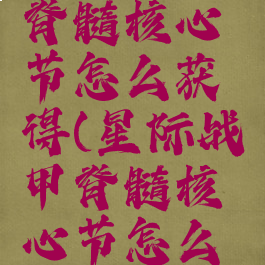 脊髓核心
节怎么获
得(星际战
甲脊髓核
心节怎么